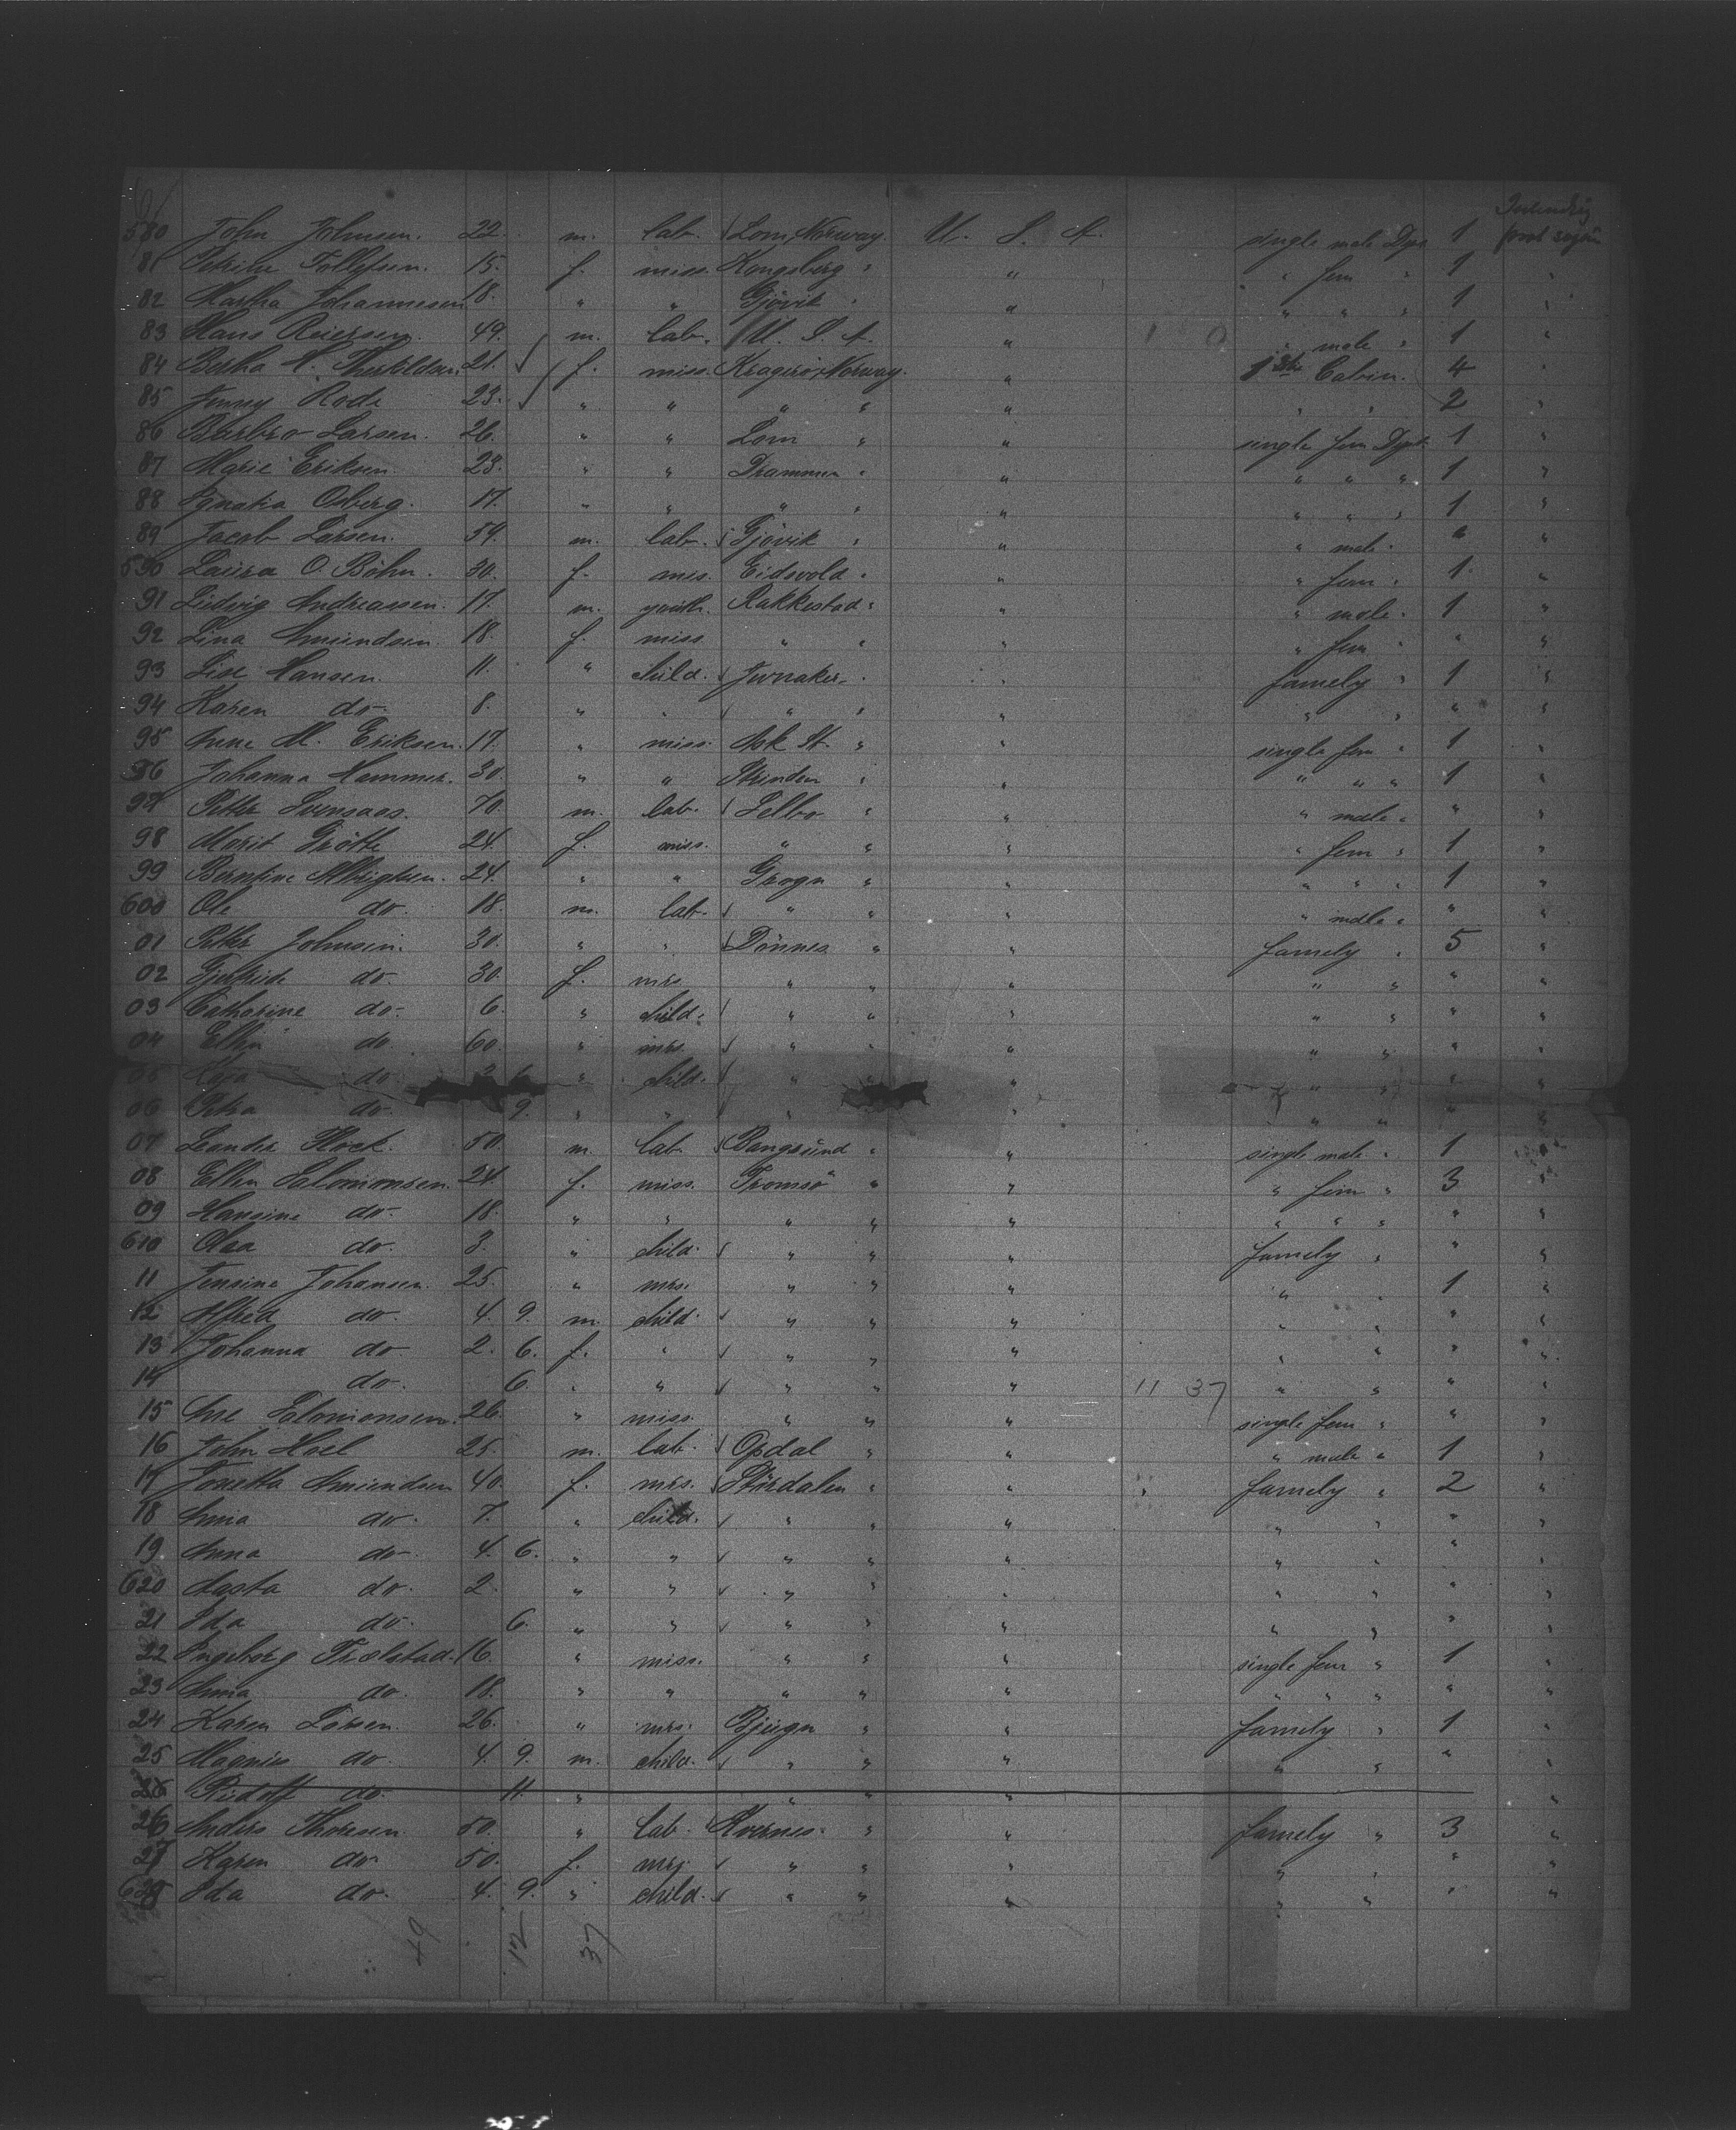 580 John Johnsen. 22. m. lab. Lom, Norway. U. S. A. single male Dpt 1
81 Petrine Tollefsen. 15. f. miss. Kongsberg " " " fem " 1 "
82 Martha Johannesen 18. " " Gjövik " " " " " 1 "
83 Hans Reiersen. 49. m. lab. U. S. A. " 1 0 " male " 1 "
84 Bertha 21. f. miss. Kragerö, Norway. " Cabin. 4 "
85 Jenny Rode 23. " " " " " " " 2 "
86 Barbro Larsen. 26. " " Lom " " single fem Dpt 1 "
87 Marie Eriksen. 23. " " Drammen " " " " " 1 "
88 Ignatia Osberg. 17. " " " " " " " " 1 "
89 Jacob Larsen. 54. m. lab. Gjövik " " " male " " "
590 Laura O. Böhn. 30. f. mis. Eidsvold " " " fem " 1 "
91 Ludvig Andreassen. 17. m. youth. Rakkestad " " " male " 1 "
92 Lina Amundsen. 18. f. miss. " " " " fem " " "
93 Lise Hansen. 11. " child. Jevnaker " " famely " 1 "
94 Karen do. 8. " " " " " " " " "
95 Anne M. Eriksen. 17. " miss. Ask St. " " single fem " 1 "
96 Johanna Hammer. 30. " " Strinden " " " " " 1 "
97 Petter Svensaas. 70. m. lab. Selbo " " " male " " "
98 Marit Grötte 24. f. miss. " " " " fem " 1 "
99 Berntine Albrigtsen. 24. " " Grogn " " " " " 1 "
600 Ole do. 18. m. lab. " " " " male " " "
01 Petter Johnsen. 30. " " Dönnes " " famely " 5 "
02 Gjertride do. 30. f. mrs. " " " " " " "
03 Catharine do. 6. " child. " " " " " " "
04 Ellen do. 60. " mrs. " " " " " " "
05 do. " child. " " " " " " "
06 Petra do. 9. " " " " " " " " "
07 Leander 50. m. lab. Bangsund " " single male " 1 "
08 Ellen Salomonsen. 24. f. miss. Tromsö " " " fem " 3 "
09 Hansine do. 18. " " " " " " " " " "
610 Olaa do. 3. " child. " " " famely " " "
11 Jensine Johansen. 25. " mrs. " " " " " 1 "
12 Alfred do. 4. 9. m. child. " " " " " " "
13 Johanna do. 2. 6. f. " " " " " " " "
14 do. 6. " " " " " 11 37 " " " "
15 Ane Salomonsen. 26. " miss. " " " single fem " " "
16 John Hoel 25. m. lab. Opdal " " " male " 1 "
17 Jonetta Amundsen 40. f. mrs. Stördalen " " famely " 2 "
18 Anna do. 7. " child. " " " " " " "
19 Anna do. 4. 6. " " " " " " " " "
620 Aasta do. 2. " " " " " " " " "
21 Ida do. 6. " " " " " " " " "
22 Ingeborg Trælstad. 16. " miss. " " " single fem " 1 "
23 Anna do. 18. " " " " " " " " " "
24 Karen Larsen. 26. " mrs. Bjugn " " famely " 1 "
25 Magnus do. 4. 9. m. child. " " " " " " "
26 Rudolf do. 11. " " " " "
26 Anders Thoresen. 50. " lab. Kvernes. " " famely " 3 "
27 Karen do. 50. f. mrs. " " " " " " "
628 Ida do. 4. 9. " child. " " " " " " "
49 12 37